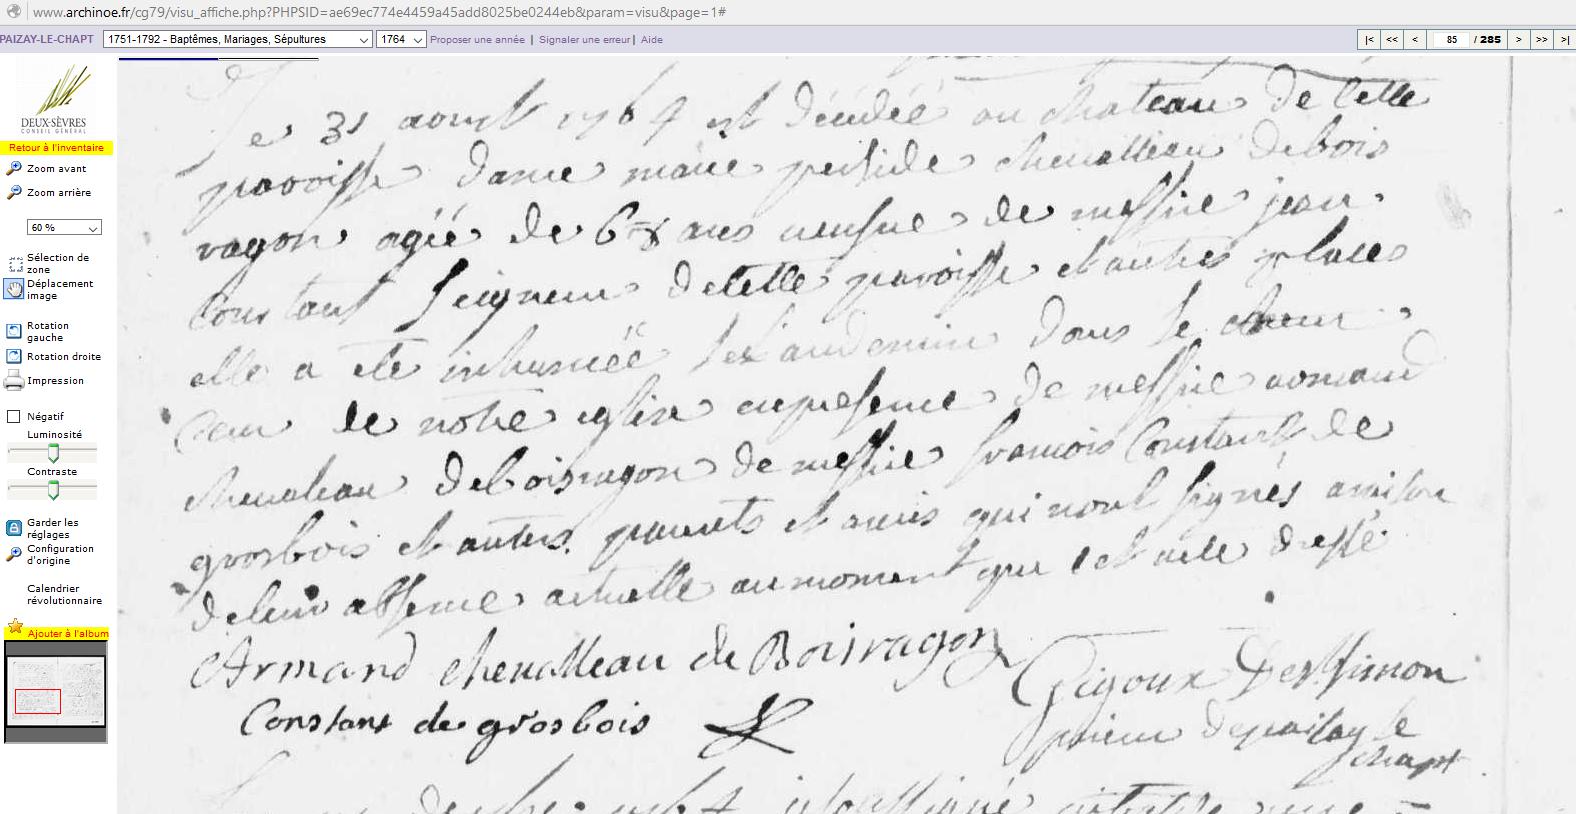 www.archinoe.fr/cg79/visu_affiche.php?PHPSID=ae69ec774e4459a45add8025be0244eb&param=visu&page=1#
PAIZAY-LE-CHAPT 1751-1792 - Baptêmes, Mariages, Sépultures 1764 Proposer une année | Signaler une erreur | Aide |< << < 85 / 285 > >> >|
DEUX-SÈVRES
CONSEIL GÉNÉRAL
Retour à l'inventaire
Zoom avant
Zoom arrière
60 %
Sélection de
zone
Déplacement
image
Rotation
gauche
Rotation droite
Impression
Négatif
Luminosité
Contraste
Garder les
réglages
Configuration
d'origine
Calendrier
révolutionnaire
Ajouter à l'album
Le 31 aoust 1764 est décédée au chateau de cette
paroisse dame marie perside chevalleau de bois
ragon agée de ans veufve de messire jean
Constant seigneur de cette paroisse et autres places
elle a eté inhumée le landemain dans le
de notre eglise en presence de messire armand
chevaleau de boisragon de messire francois Constant de
grosbois et autres parents et amis qui n'ont signés a raison
de leur absence actuelle au moment que cet acte dressé
Armand chevalleau de Boisragon
Constant de grosbois
Gigoux Desssimon
prieur de paisay le
chapt